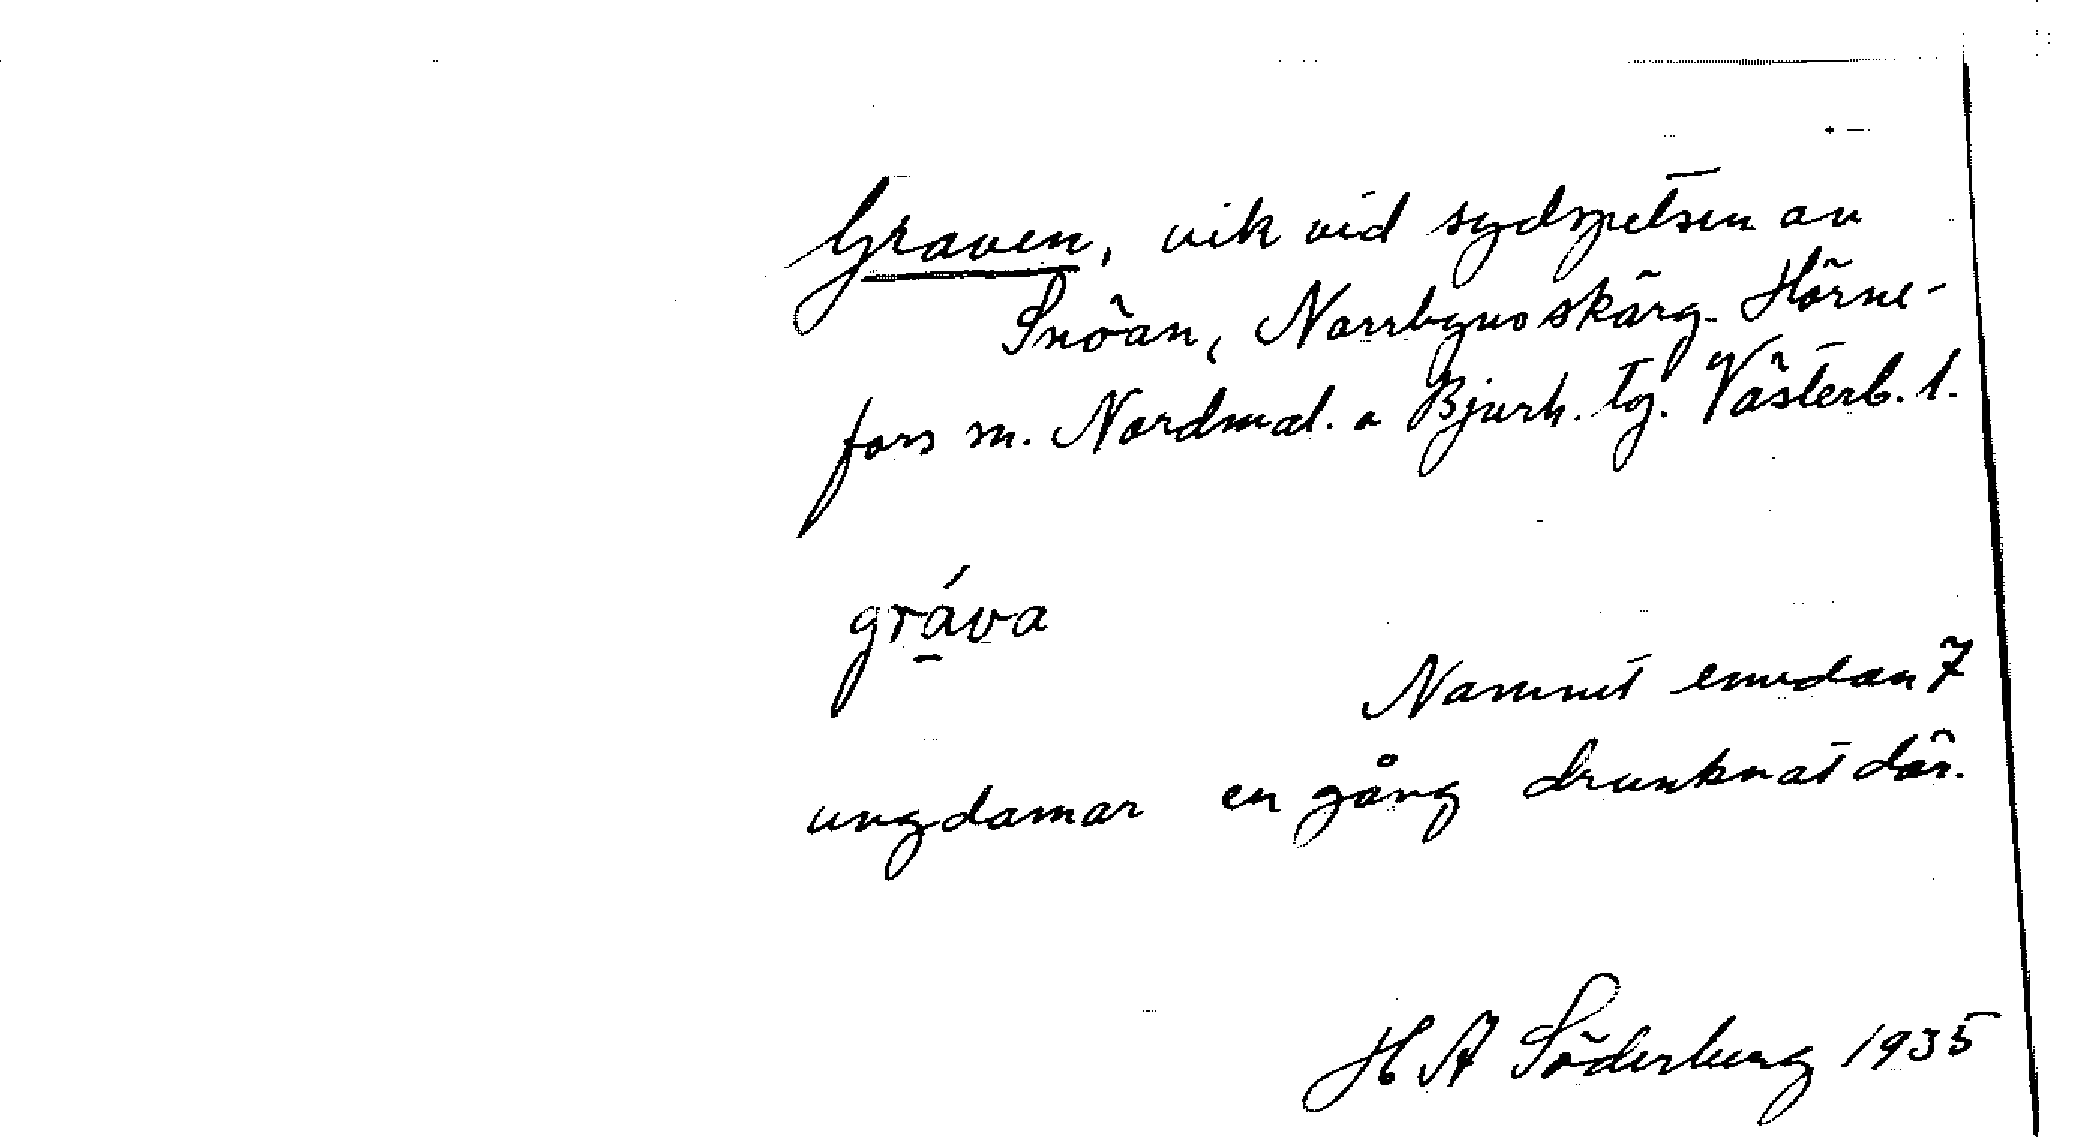 Graven, vik vid sydspetsen av
Snöan, Norrbyns skärg. Hörne-
fors sn. Nordmal. o Bjurh. tg. Västerb. l.
gráva
Namnet emedan 7
ungdamar en gång drunknat där.
H A Söderberg 1935